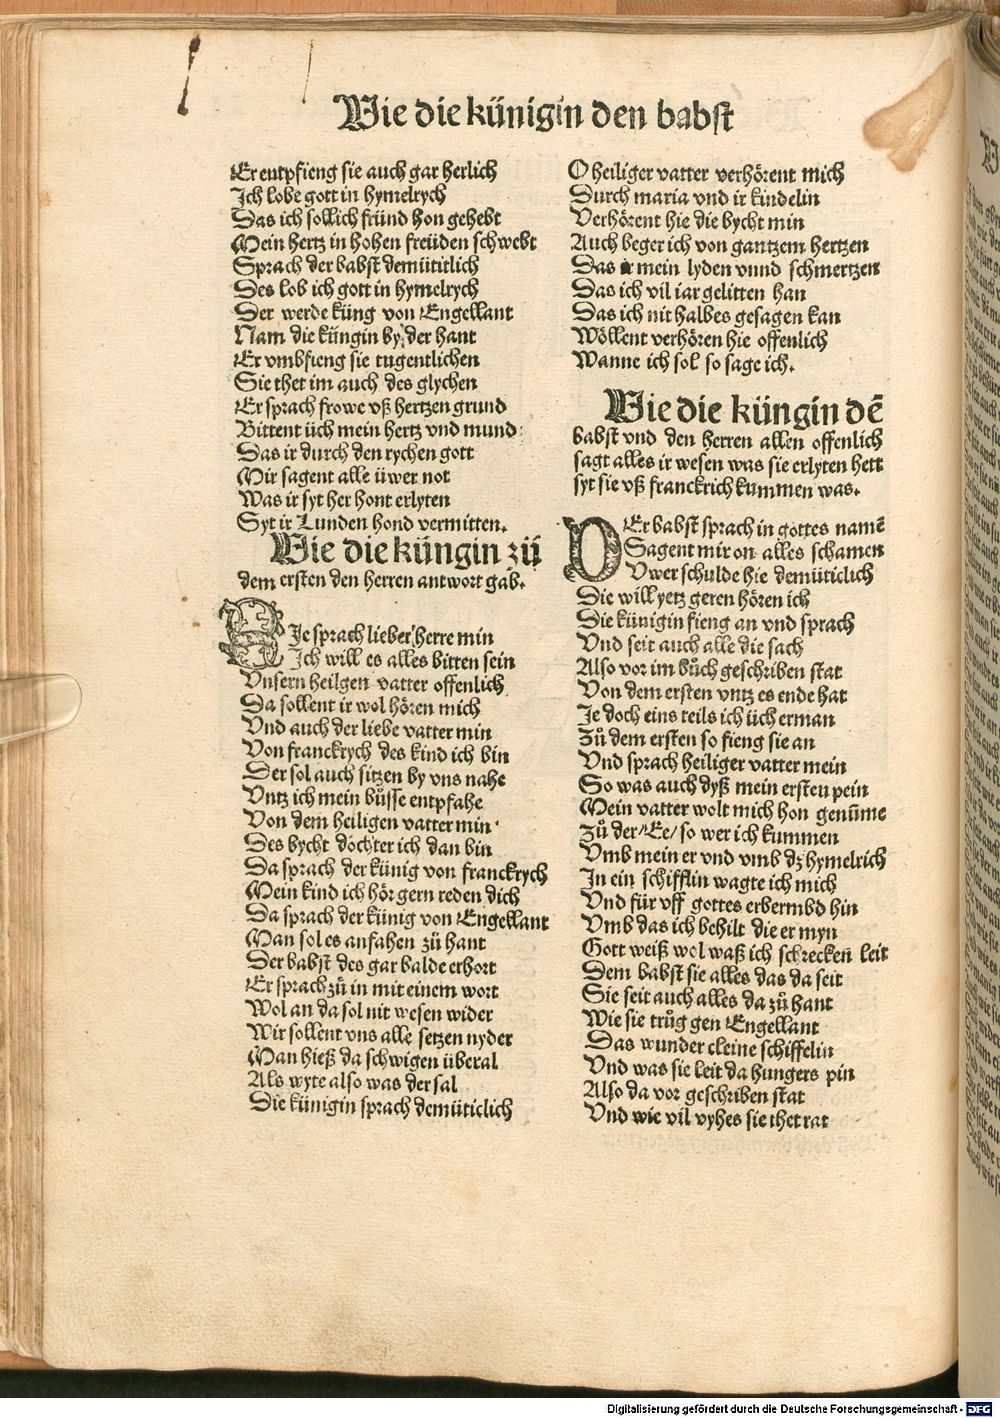 Wie die künigin den babst
Er entpfieng sie auch gar herlich
Ich lobe gott in hymelrych
Das ich sollich fründ hon gehebt
Mein hertz in hohen freüden schwebt
Sprach der babst demütitlich
Des lob ich gott in hymelrych
Der werde küng von Engellant
Nam die küngin by der hant
Er vmbfieng sie tugentlichen
Sie thet im auch des glychen
Er sprach frowe vß hertzen grund
Bittent üch mein hertz vnd mund
Das ir durch den rychen gott
Mir sagent alle üwer not
Was ir syt her hont erlyten
Syt ir Lunden hond vermitten.
Wie die küngin zů
dem ersten den herren antwort gab.
SJe sprach lieber herre min
Ich will es alles bitten sein
Vnsern heilgen vatter offenlich
Da sollent ir wol hören mich
Vnd auch der liebe vatter min
Von franckrych des kind ich bin
Der sol auch sitzen by vns nahe
Vntz ich mein bůsse entpfahe
Von dem heiligen vatter min
Des bycht döchter ich dan bin
Da sprach der künig von franckrych
Mein kind ich hör gern reden dich
Da sprach der künig von Engellant
Man sol es anfahen zů hant
Der babst des gar balde erhort
Er sprach zů in mit einem wort
Wol an da sol nit wesen wider
Wir sollent vns alle setzen nyder
Man hieß da schwigen überal
Als wyte also was der sal
Die künigin sprach demüticlich
O heiliger vatter verhörent mich
Durch maria vnd ir kindelin
Verhörent hie die bycht min
Auch beger ich von gantzem hertzen
Das ir mein lyden vnnd schmertzen
Das ich vil iar gelitten han
Das ich nit halbes gesagen kan
Wöllent verhören hie offenlich
Wanne ich sol so sage ich.
Wie die küngin dē
babst vnd den herren allen offenlich
sagt alles ir wesen was sie erlyten hett
syt sie vß franckrich kummen was.
DEr babst sprach in gottes namē
Sagent mir on alles schamen
Vwer schulde hie demüticlich
Die will yetz geren hören ich
Die künigin fieng an vnd sprach
Vnd seit auch alle die sach
Also vor im bůch geschriben stat
Von dem ersten vntz es ende hat
Je doch eins teils ich üch erman
Zů dem ersten so fieng sie an
Vnd sprach heiliger vatter mein
So was auch dyß mein ersten pein
Mein vatter wolt mich hon genūme
Zů der/Ee/ so wer ich kummen
Vmb mein er vnd vmb dz hymelrich
In ein schifflin wagte ich mich
Vnd für vff gottes erbermbd hin
Vmb das ich behilt die er myn
Gott weiß wol waß ich schrecken leit
Dem babst sie alles das da seit
Sie seit auch alles da zů hant
Wie sie trůg gen Engellant
Das wunder cleine schiffelin
Vnd was sie leit da hungers pin
Also da vor geschriben stat
Vnd wie vil vyhes sie thet rat
Digitalisierung gefördert durch die Deutsche Forschungsgemeinschaft - DFG